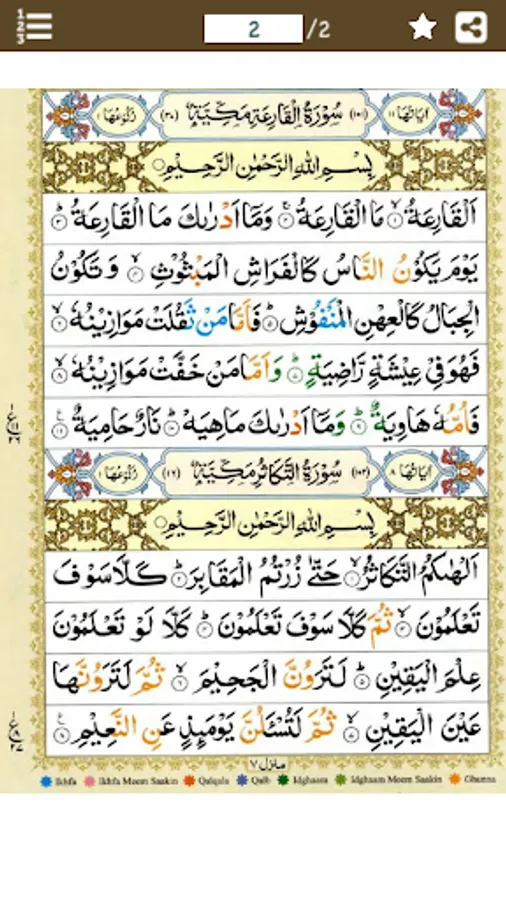 2 /2
اٰيَاتُهَا ١١ (١٠١) سُوْرَةُ الْقَارِعَةِ مَكِّيَّةٌ (٣٠) رُكُوْعُهَا ١
بِسْمِ اللّٰهِ الرَّحْمٰنِ الرَّحِيْمِ
اَلْقَارِعَةُ ۙ‏ ١ مَا الْقَارِعَةُ ۚ‏ ٢ وَمَاۤ اَدْرٰىكَ مَا الْقَارِعَةُ ؕ‏ ٣
يَوْمَ يَكُوْنُ النَّاسُ كَالْفَرَاشِ الْمَبْثُوْثِ ۙ‏ ٤ وَتَكُوْنُ
الْجِبَالُ كَالْعِهْنِ الْمَنْفُوْشِ ؕ‏ ٥ فَاَمَّا مَنْ ثَقُلَتْ مَوَازِيْنُهٗ ۙ‏ ٦
فَهُوَ فِىْ عِيْشَةٍ رَّاضِيَةٍ ؕ‏ ٧ وَاَمَّا مَنْ خَفَّتْ مَوَازِيْنُهٗ ۙ‏ ٨
فَاُمُّهٗ هَاوِيَةٌ ؕ‏ ٩ وَمَاۤ اَدْرٰىكَ مَا هِيَهْ ؕ‏ ١٠ نَارٌ حَامِيَةٌ ١١
اٰيَاتُهَا ٨ (١٠٢) سُوْرَةُ التَّكَاثُرِ مَكِّيَّةٌ (١٦) رُكُوْعُهَا ١
بِسْمِ اللّٰهِ الرَّحْمٰنِ الرَّحِيْمِ
اَلْهٰىكُمُ التَّكَاثُرُ ۙ‏ ١ حَتّٰى زُرْتُمُ الْمَقَابِرَ ؕ‏ ٢ كَلَّا سَوْفَ
تَعْلَمُوْنَ ۙ‏ ٣ ثُمَّ كَلَّا سَوْفَ تَعْلَمُوْنَ ؕ‏ ٤ كَلَّا لَوْ تَعْلَمُوْنَ
عِلْمَ الْيَقِيْنِ ؕ‏ ٥ لَتَرَوُنَّ الْجَحِيْمَ ۙ‏ ٦ ثُمَّ لَتَرَوُنَّهَا
عَيْنَ الْيَقِيْنِ ۙ‏ ٧ ثُمَّ لَتُسْـَٔلُنَّ يَوْمَئِذٍ عَنِ النَّعِيْمِ ٨
منزل ٧
Ikhfa Ikhfa Meem Saakin Qalqala Qalb Idghaam Idghaam Meem Saakin Ghunna